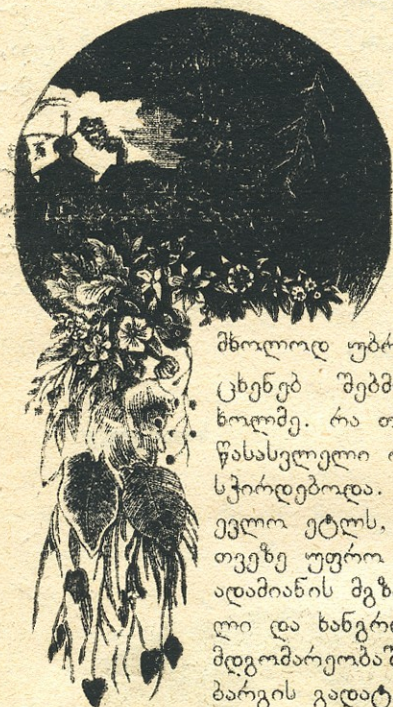 მხოლოდ უბრ
ცხენებ შებმ
ხოლმე. რა თ
წასასვლელი
სჭირდებოდა.
ევლო ეტლს,
თვეზე უფრო
ადამიანის მგზ
ლი და ხანგრ
მდგომარეობაშ
ბარგის გადატ